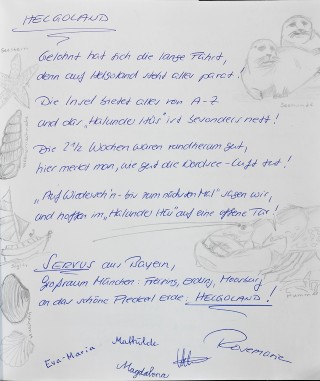 HELGOLAND
Gelohnt hat sich die lange Fahrt,
denn auf Helgoland steht alles parat!
Die Insel bietet alles von A-Z
und das "Halunder Hüs" ist besonders nett!
Die 2 1/2 Wochen waren rundherum gut,
hier merkt man, wie gut die Nordsee-Luft tut!
"Auf Wiederseh'n - bis zum nächsten Mal" sagen wir,
und hoffen im "Halunder Hüs" auf eine offene Tür!
SERVUS aus Bayern,
Großraum München: Freising, Erding, Moosburg
an das schöne Fleckerl Erde: HELGOLAND!
Eva-Maria
Mathilde
Magdalena
Rosemarie